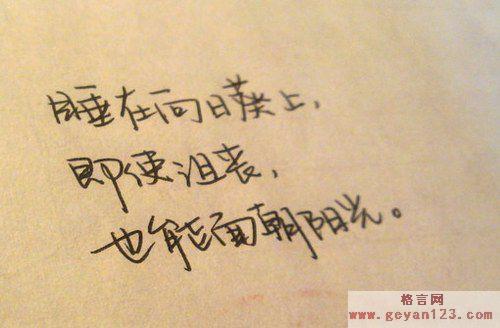 睡在向日葵上，
即使沮丧，
也能面朝阳光。
格言网
www.geyan123.com